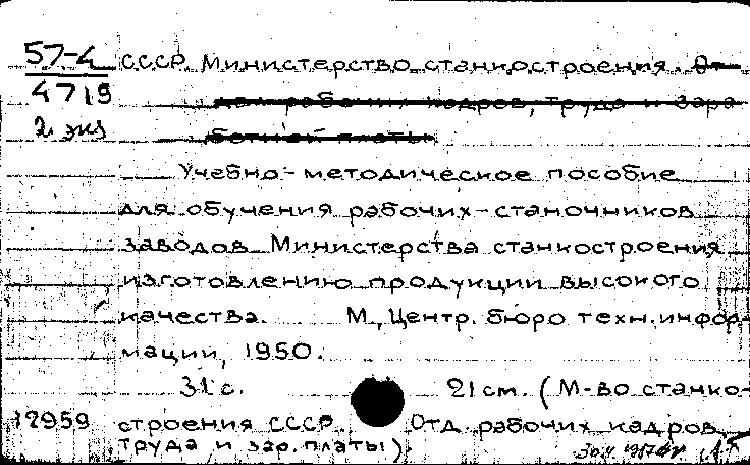 57-4
4719
2 экз
СССР. Министерство станкостроения. От-
дел рабочих кадров, труда и зара-
ботной платы
Учебно-методическое пособие
для обучения рабочих-станочников
заводов Министерства станкостроения
изготовлению продукции высокого
качества. М., Центр. бюро техн. инфор-
мации, 1950.
31 с. 21 см. (М-во станко-
12959 строения СССР. Отд. рабочих кадров,
труда и зар. платы).